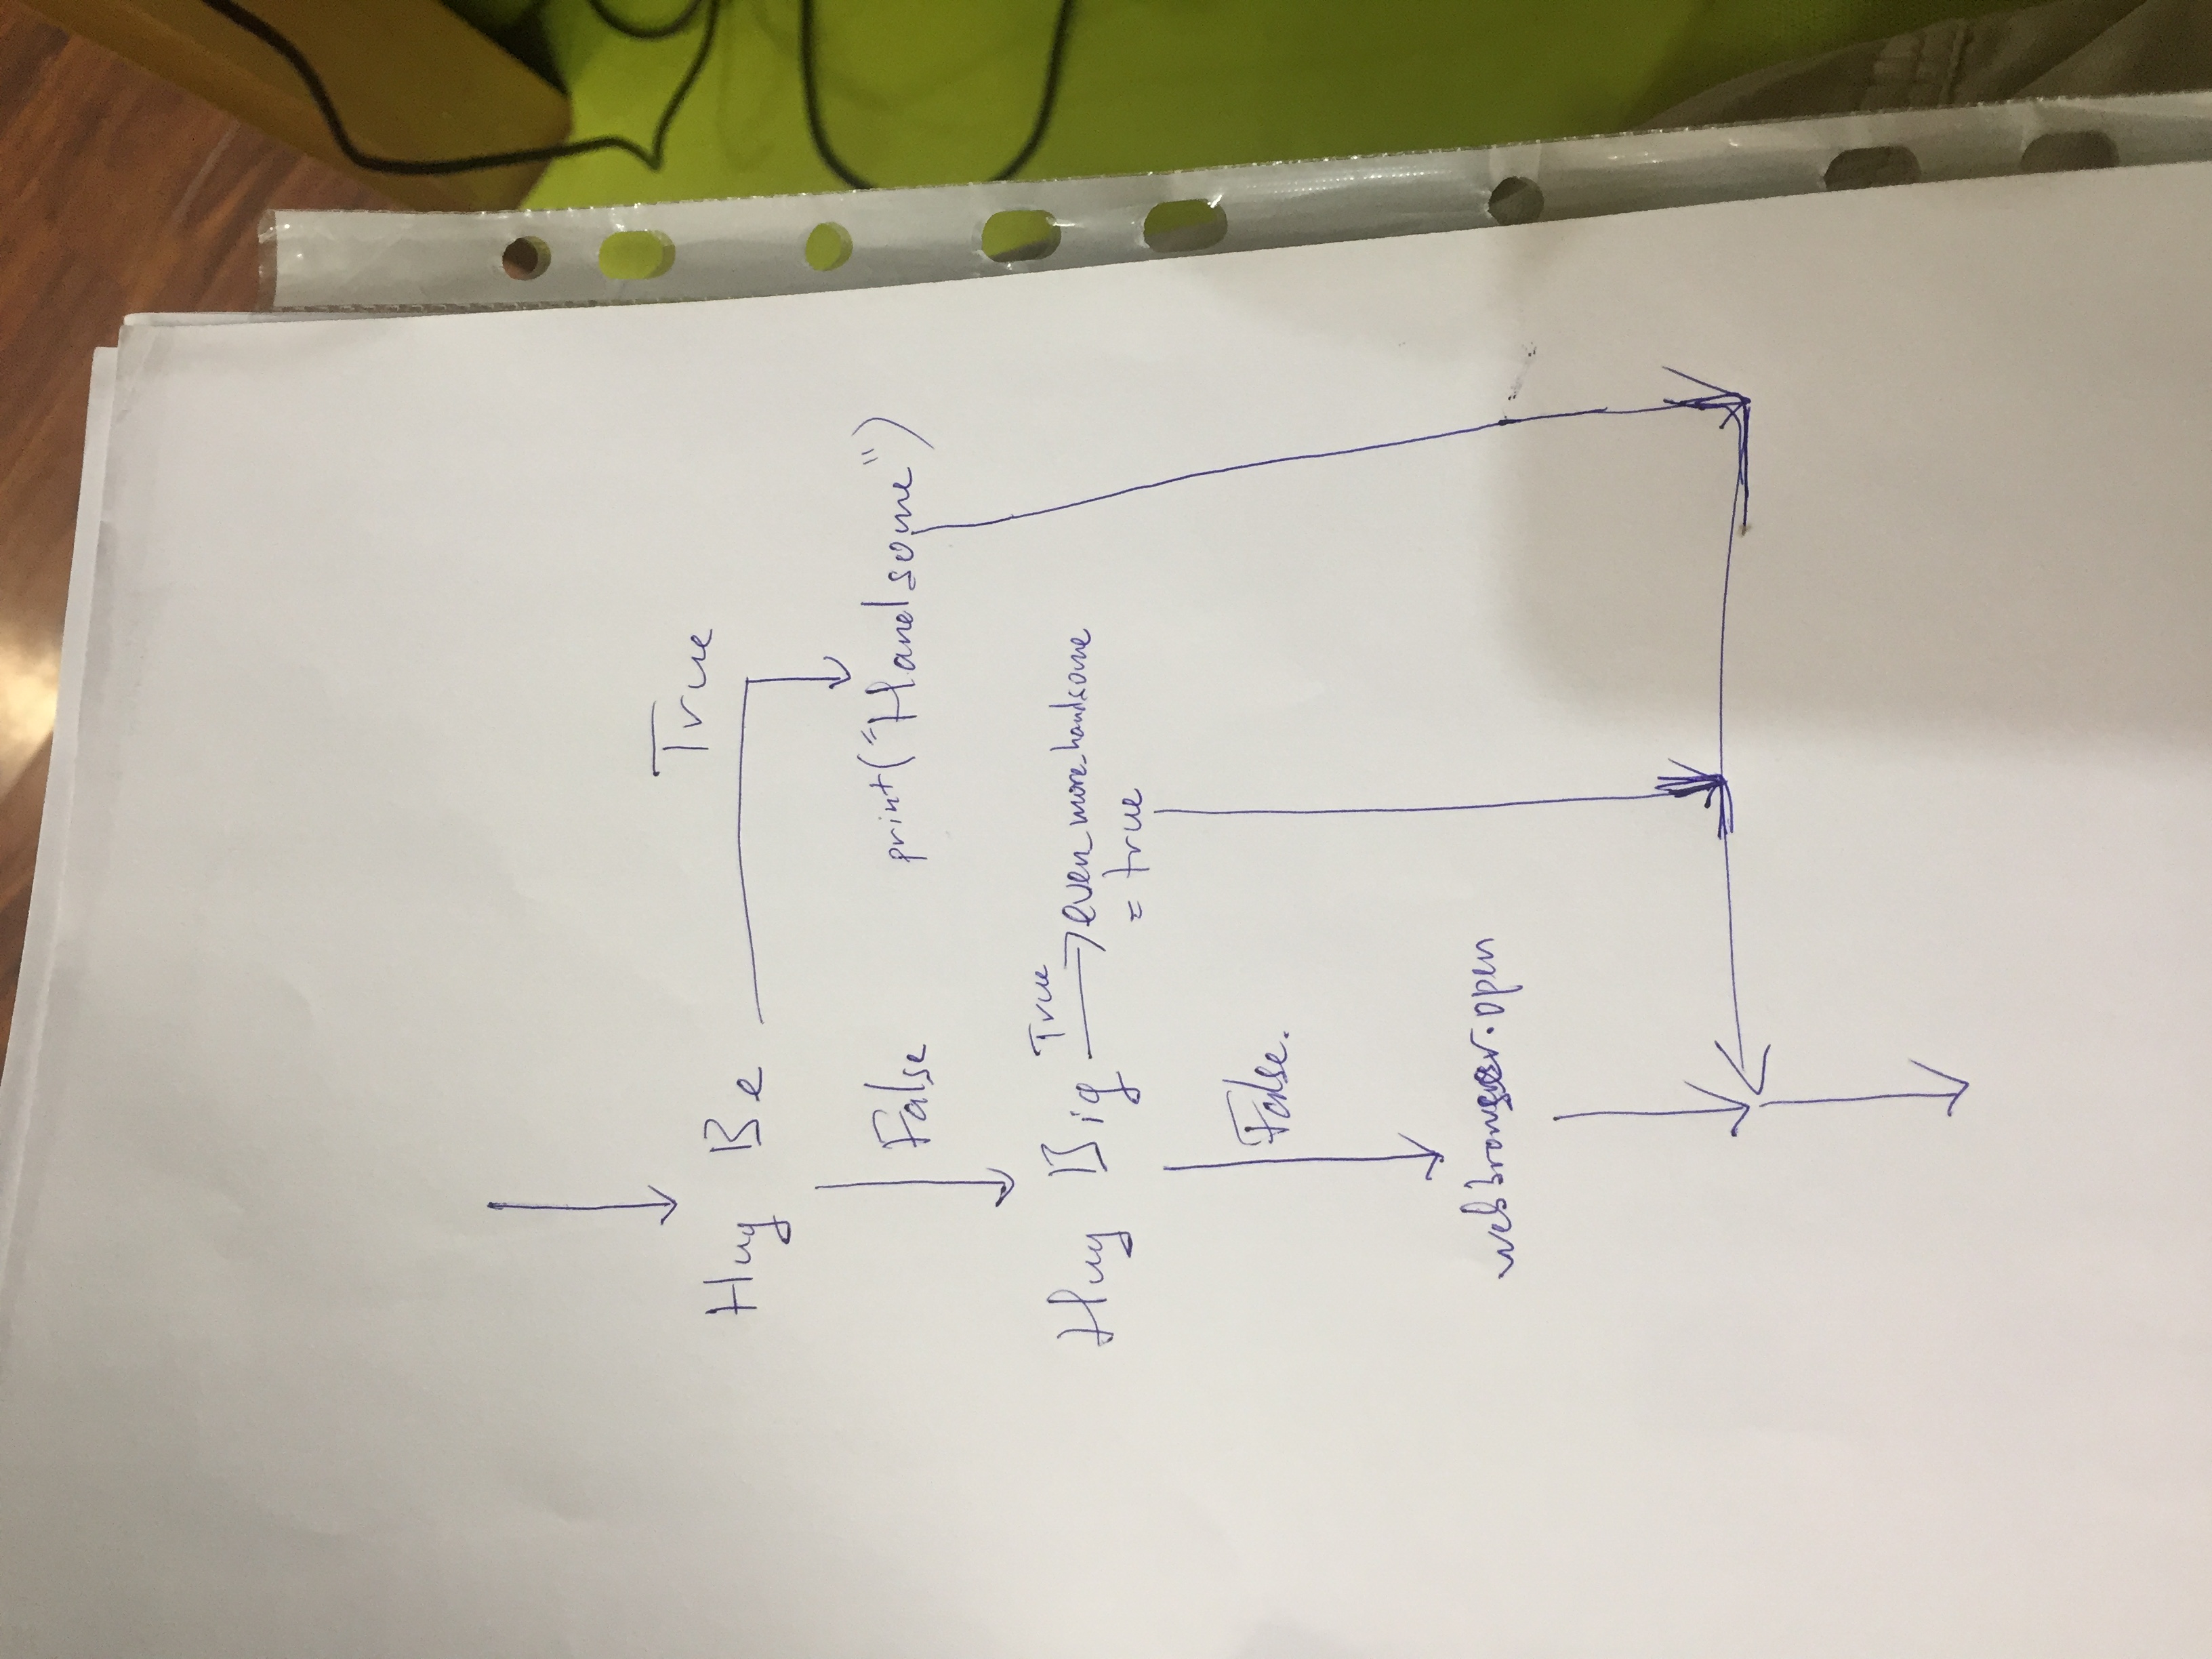 Huy Be
True
False
print("Handsome")
Huy Big
True
even_more_handsome
= true
False.
webbrowser.open